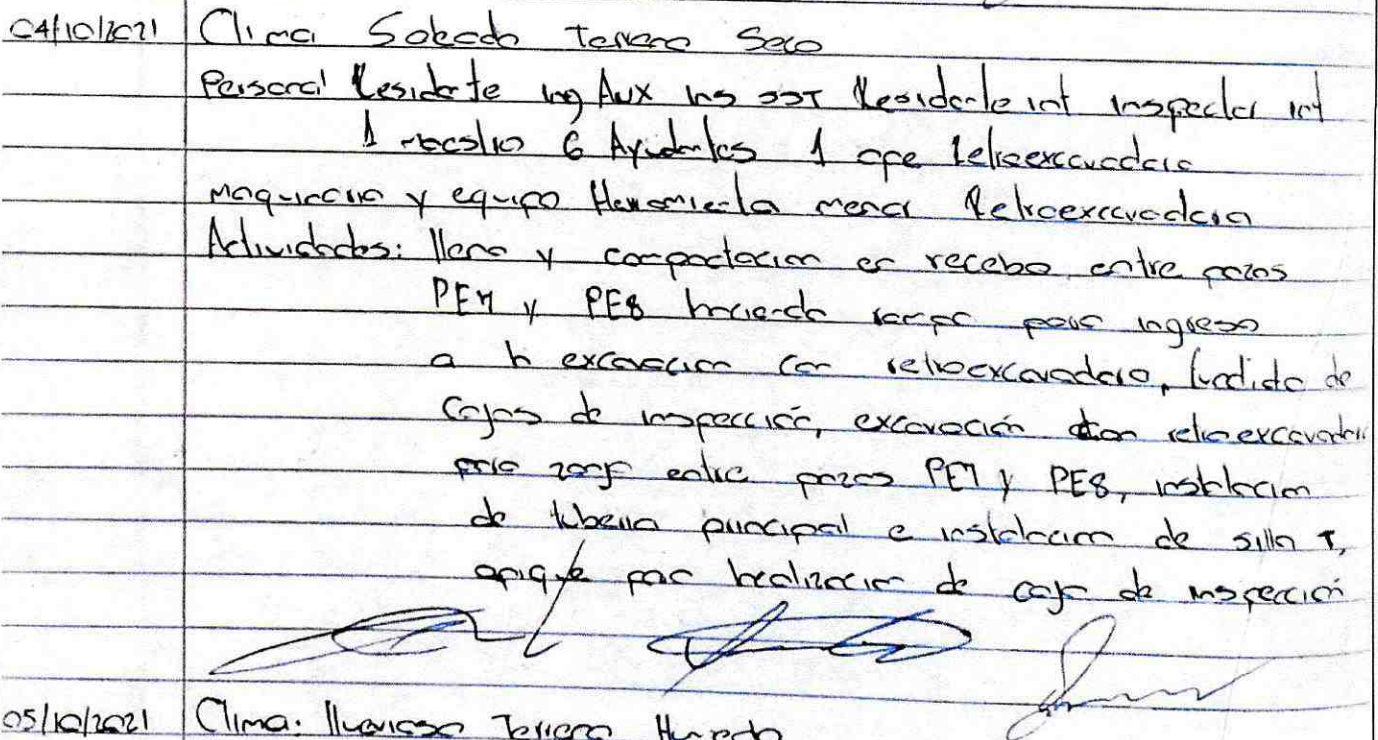 04/10/2021 Clima Soleado Terreno Seco
Personal Residente ing Aux ing SST Residente int inspector int
1 maestro 6 Ayudantes 1 ope Retroexcavadora
Maquinaria y equipo Herramienta menor Retroexcavadora
Actividades: lleno y compactacion en recebo entre pozos
PE7 y PE8 haciendo rampa para ingreso
a la excavacion con retroexcavadora, fundida de
Cajas de inspección, excavación con retroexcavadora
para zanja entre pozos PE7 y PE8, instalacion
de tuberia principal e instalacion de silla T,
apique para localizacion de caja de inspección
05/10/2021 Clima: lluvioso Terreno Humedo